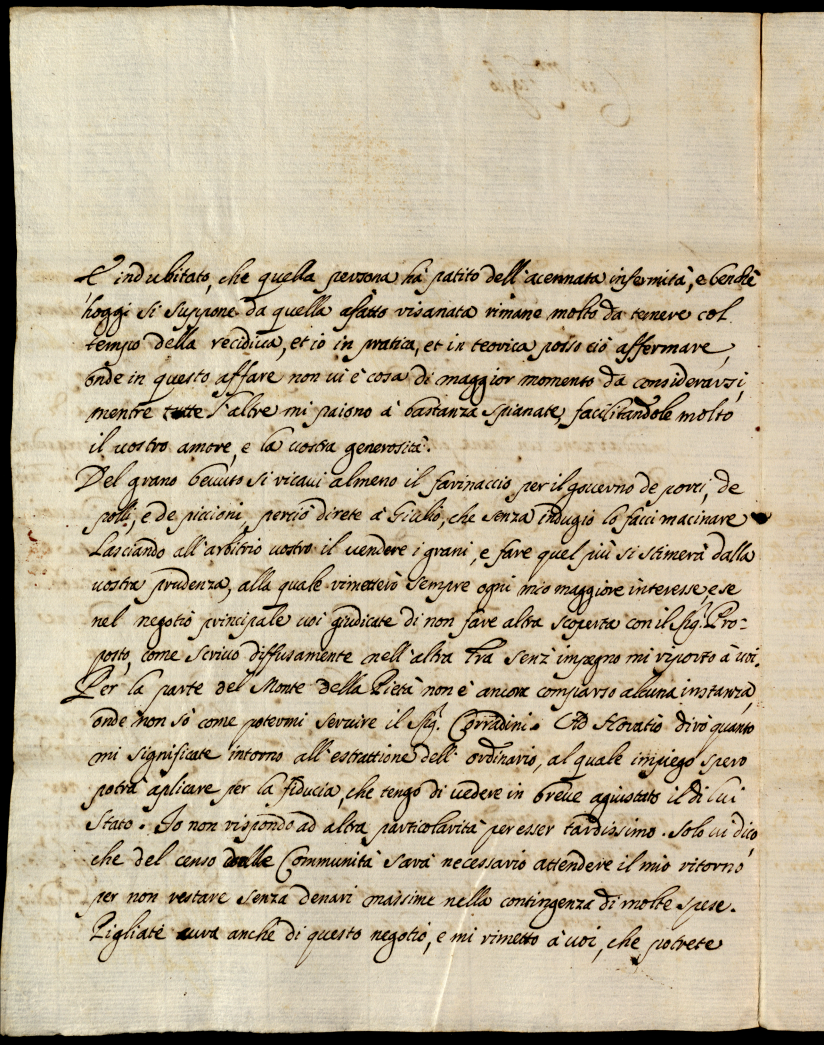 E' indubitato, che quella persona hà patito dell'acennata infermità, e benchè
hoggi si suppone da quella afatto risanata rimane molto da temere col
tempo della recidiua, et io in pratica, et in teorica posso ciò affermare,
onde in questo affare non ui è cosa di maggior momento da considerarsi,
mentre tutte l'altre mi paiono à bastanza spianate, facilitandole molto
il uostro amore, e la uostra generosità.
Del grano beuuto si ricaui almeno il farinaccio per il gouerno de porci, de
polli, e de piccioni, perciò direte à Giulio, che senza indugio lo facci macinare
Lasciando all'arbitrio uostro il uendere i grani, e fare quel più si stimerà dalla
uostra prudenza, alla quale rimetterò sempre ogni mio maggiore interesse, e se
nel negotio principale uoi giudicate di non fare altra scoperta con il Sig.r Pro=
posto, come scriuo diffusamente nell'altra l'ra senz'impegno mi riporto à uoi.
Per la parte del Monte della Pietà non è ancora comparso alcuna instanza,
onde non sò come potermi seruire il Sig.r Corradini. Ad Horatio dirò quanto
mi significate intorno all'estrattione dell'ordinario, al quale impiego spero
potrà aplicare per la fiducia, che tengo di uedere in breue agiustato il di lui
stato. Io non rispondo ad altra particolarità per esser tardissimo. Solo ui dico,
che del censo delle Communità sarà necessario attendere il mio ritorno
per non restare senza denari massime nella contingenza di molte spese.
Pigliate cura anche di questo negotio, e mi rimetto à uoi, che potrete